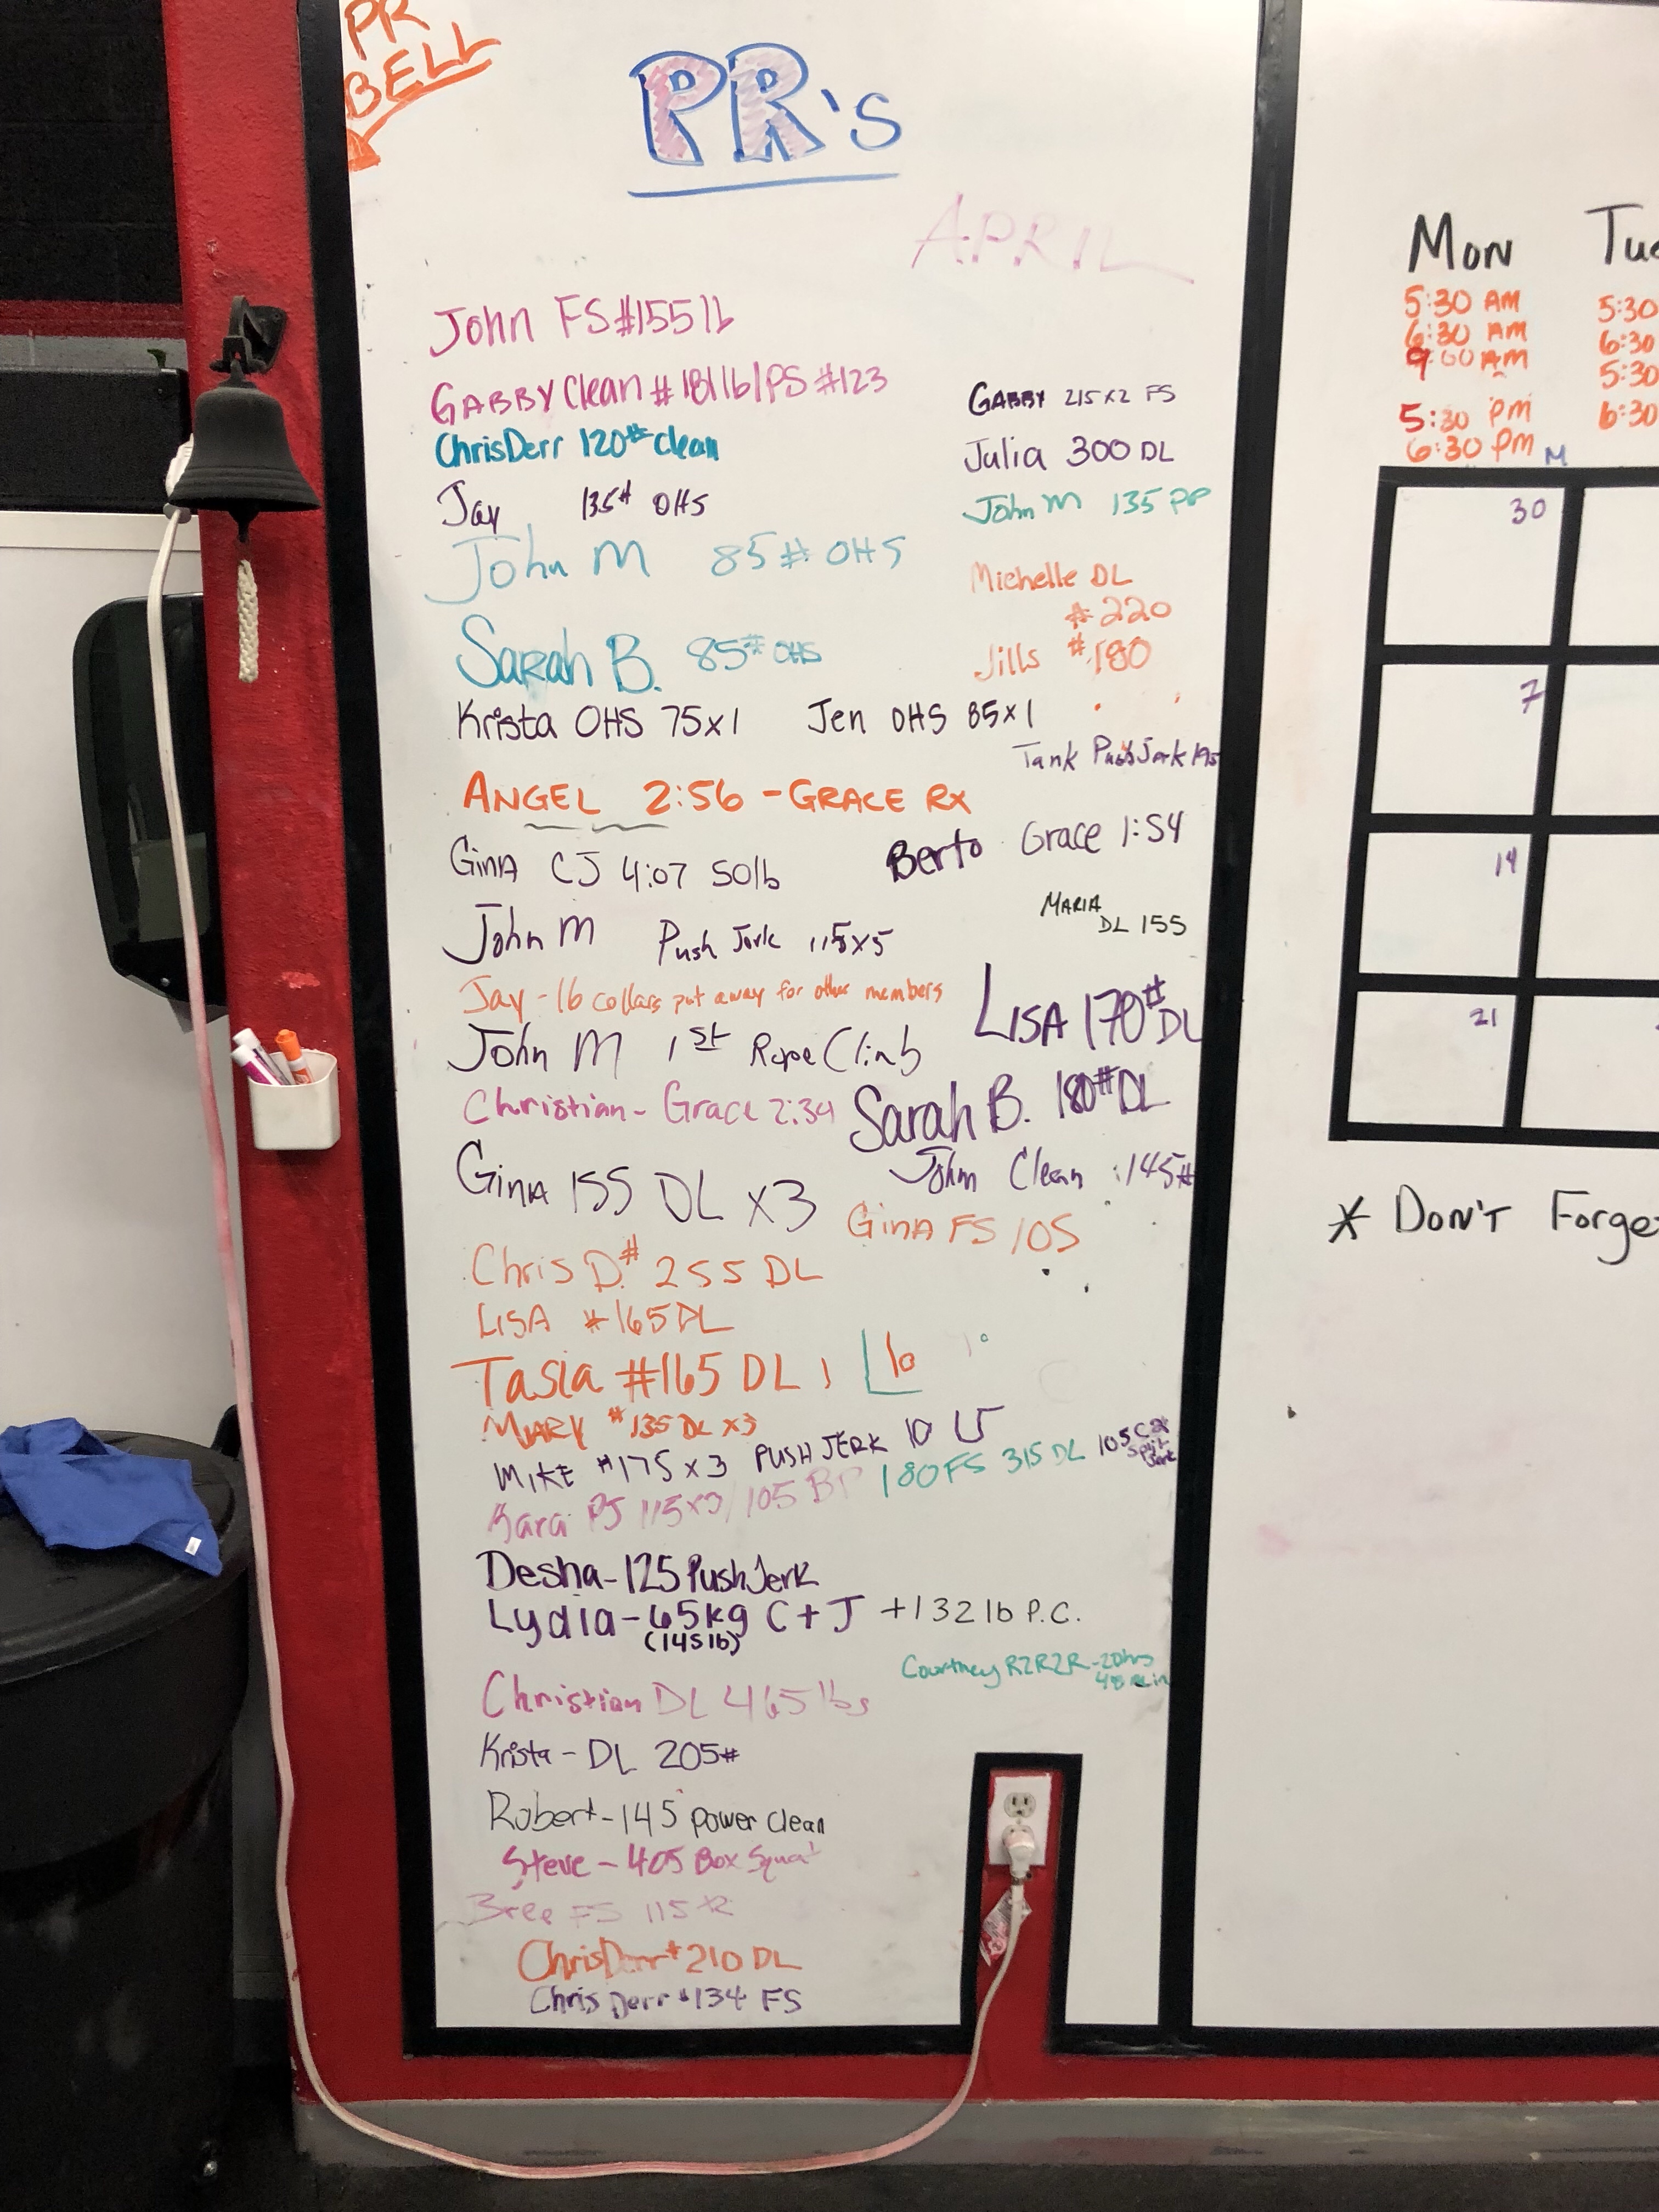 PR
BELL
PR's
APRIL
John FS #155 lb
GABBY Clean # 181 lb | PS #123
GABBY 215 x 2 FS
ChrisDerr 120# clean
Julia 300 DL
Jay 135# OHS
John M 135 PP
John M 85# OHS
Michelle DL
# 220
Sarah B. 85# OHS
Jills # 180
Krista OHS 75 x 1 Jen OHS 85 x 1
Tank Push Jerk 195
ANGEL 2:56 - GRACE RX
Berto Grace 1:54
GinA CJ 4:07 50lb
MARIA
DL 155
John M Push Jerk 115 x 5
Jay - 16 collars put away for other members
LISA 170# DL
John M 1st Rope Climb
Christian - Grace 2:34
Sarah B. 180# DL
John Clean 145#
GinA 155 DL x 3
GinA FS 105
Chris D. # 255 DL
LISA # 165 DL
Tasia #165 DL
MARY # 135 DL x3
MIKE #175 x 3 PUSH JERK
Kara PJ 115 x 3 / 105 BP 180 FS 315 DL 105 C at Split Jerk
Desha - 125 Push Jerk
Lydia - 65kg C + J + 132 lb P.C.
(145 lb)
Courtney R2R2R - 20 hrs
48 min
Christian DL 465 lbs
Krista - DL 205#
Robert - 145 power clean
Steve - 405 Box Squat
Bree FS 115
ChrisDerr # 210 DL
Chris Derr # 134 FS
Mon
5:30 AM
6:30 AM
9:00 AM
5:30 PM
6:30 PM
M
Tu
5:30
6:30
5:30
6:30
30
7
14
21
* DON'T Forge